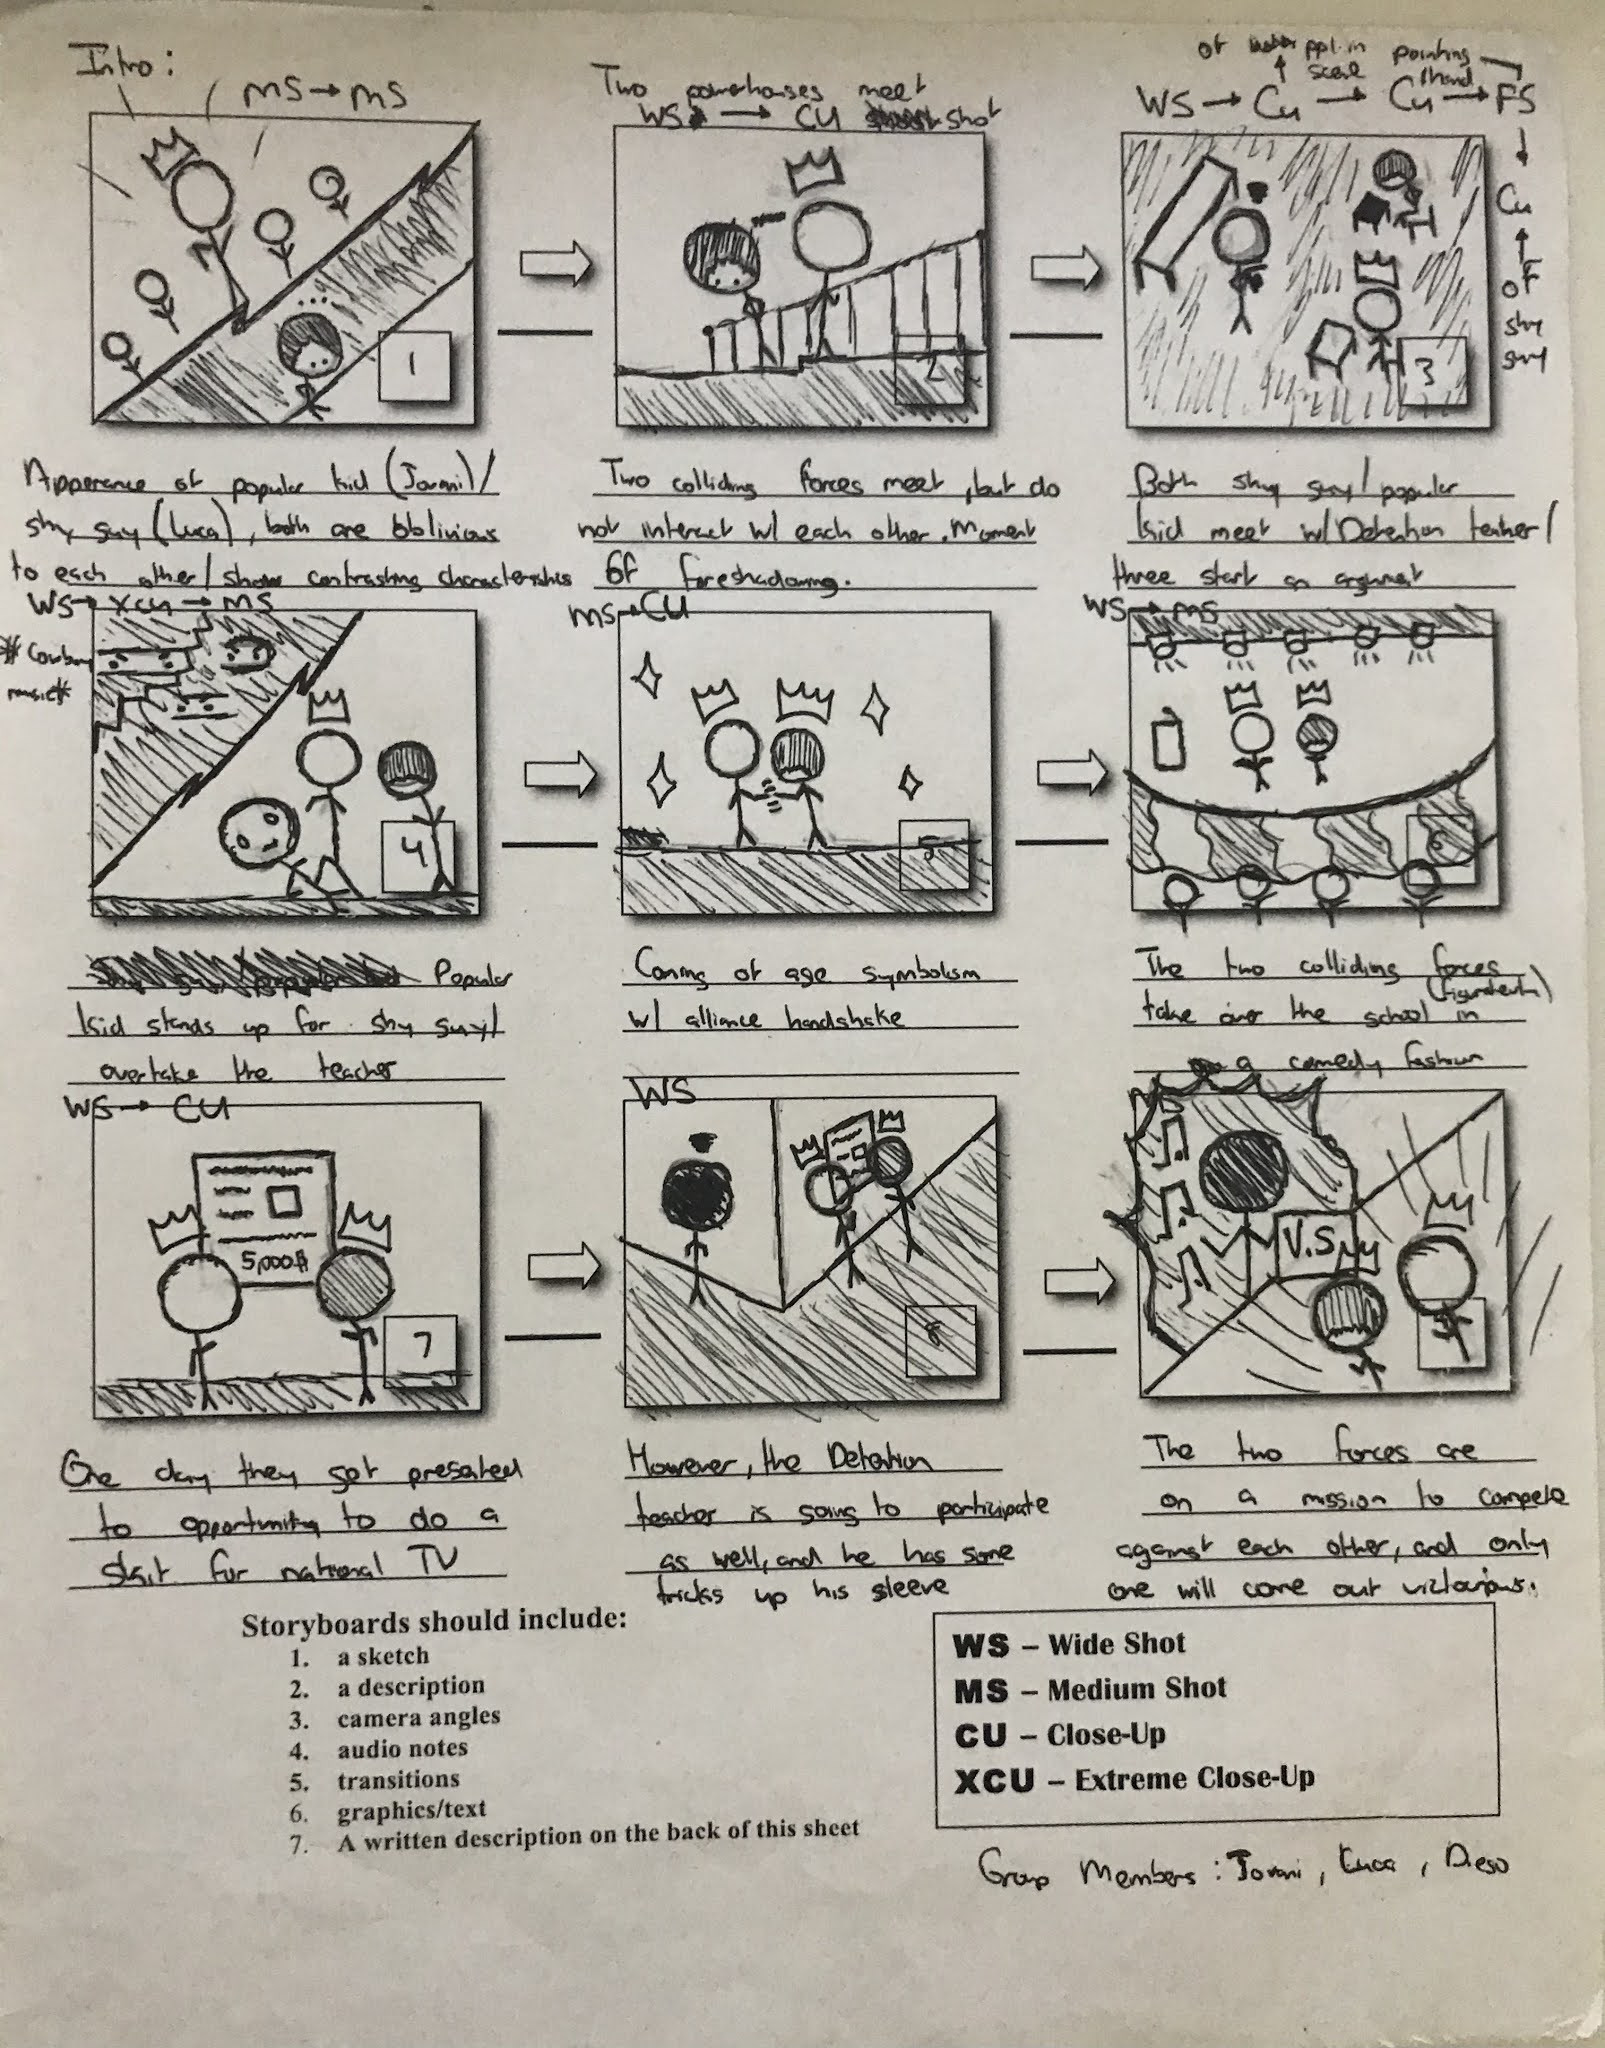 Intro:
MS → MS
Two powerhouses meet
WS → CU shot
of ppl. in scene
pointing hand
WS → Cu → Cu → FS
Cu
of
shy
guy
1
2
3
Apperance of popular kid (Jovani)/
shy guy (Luca), both are oblivious
to each other/ show contrasting characteristics
Two colliding forces meet, but do
not interact w/ each other. Moment
of foreshadowing.
Both shy guy/popular
kid meet w/ Detention teacher/
three start an argument
WS → XCU → MS
*Cowboy
music*
MS → CU
WS → MS
4
5
6
Popular
kid stands up for shy guy/
overtake the teacher
Coming of age symbolism
w/ alliance handshake
The two colliding forces
take over the school (figuratively) in
a comedy fashion
WS → CU
5,000$
7
WS
8
MS
V.S
One day they get presented
to opportunity to do a
skit for national TV
However, the Detention
teacher is going to participate
as well, and he has some
tricks up his sleeve
The two forces are
on a mission to compete
against each other, and only
one will come out victorious.
Storyboards should include:
1. a sketch
2. a description
3. camera angles
4. audio notes
5. transitions
6. graphics/text
7. A written description on the back of this sheet
WS – Wide Shot
MS – Medium Shot
CU – Close-Up
XCU – Extreme Close-Up
Group Members: Jovani, Luca, Diego